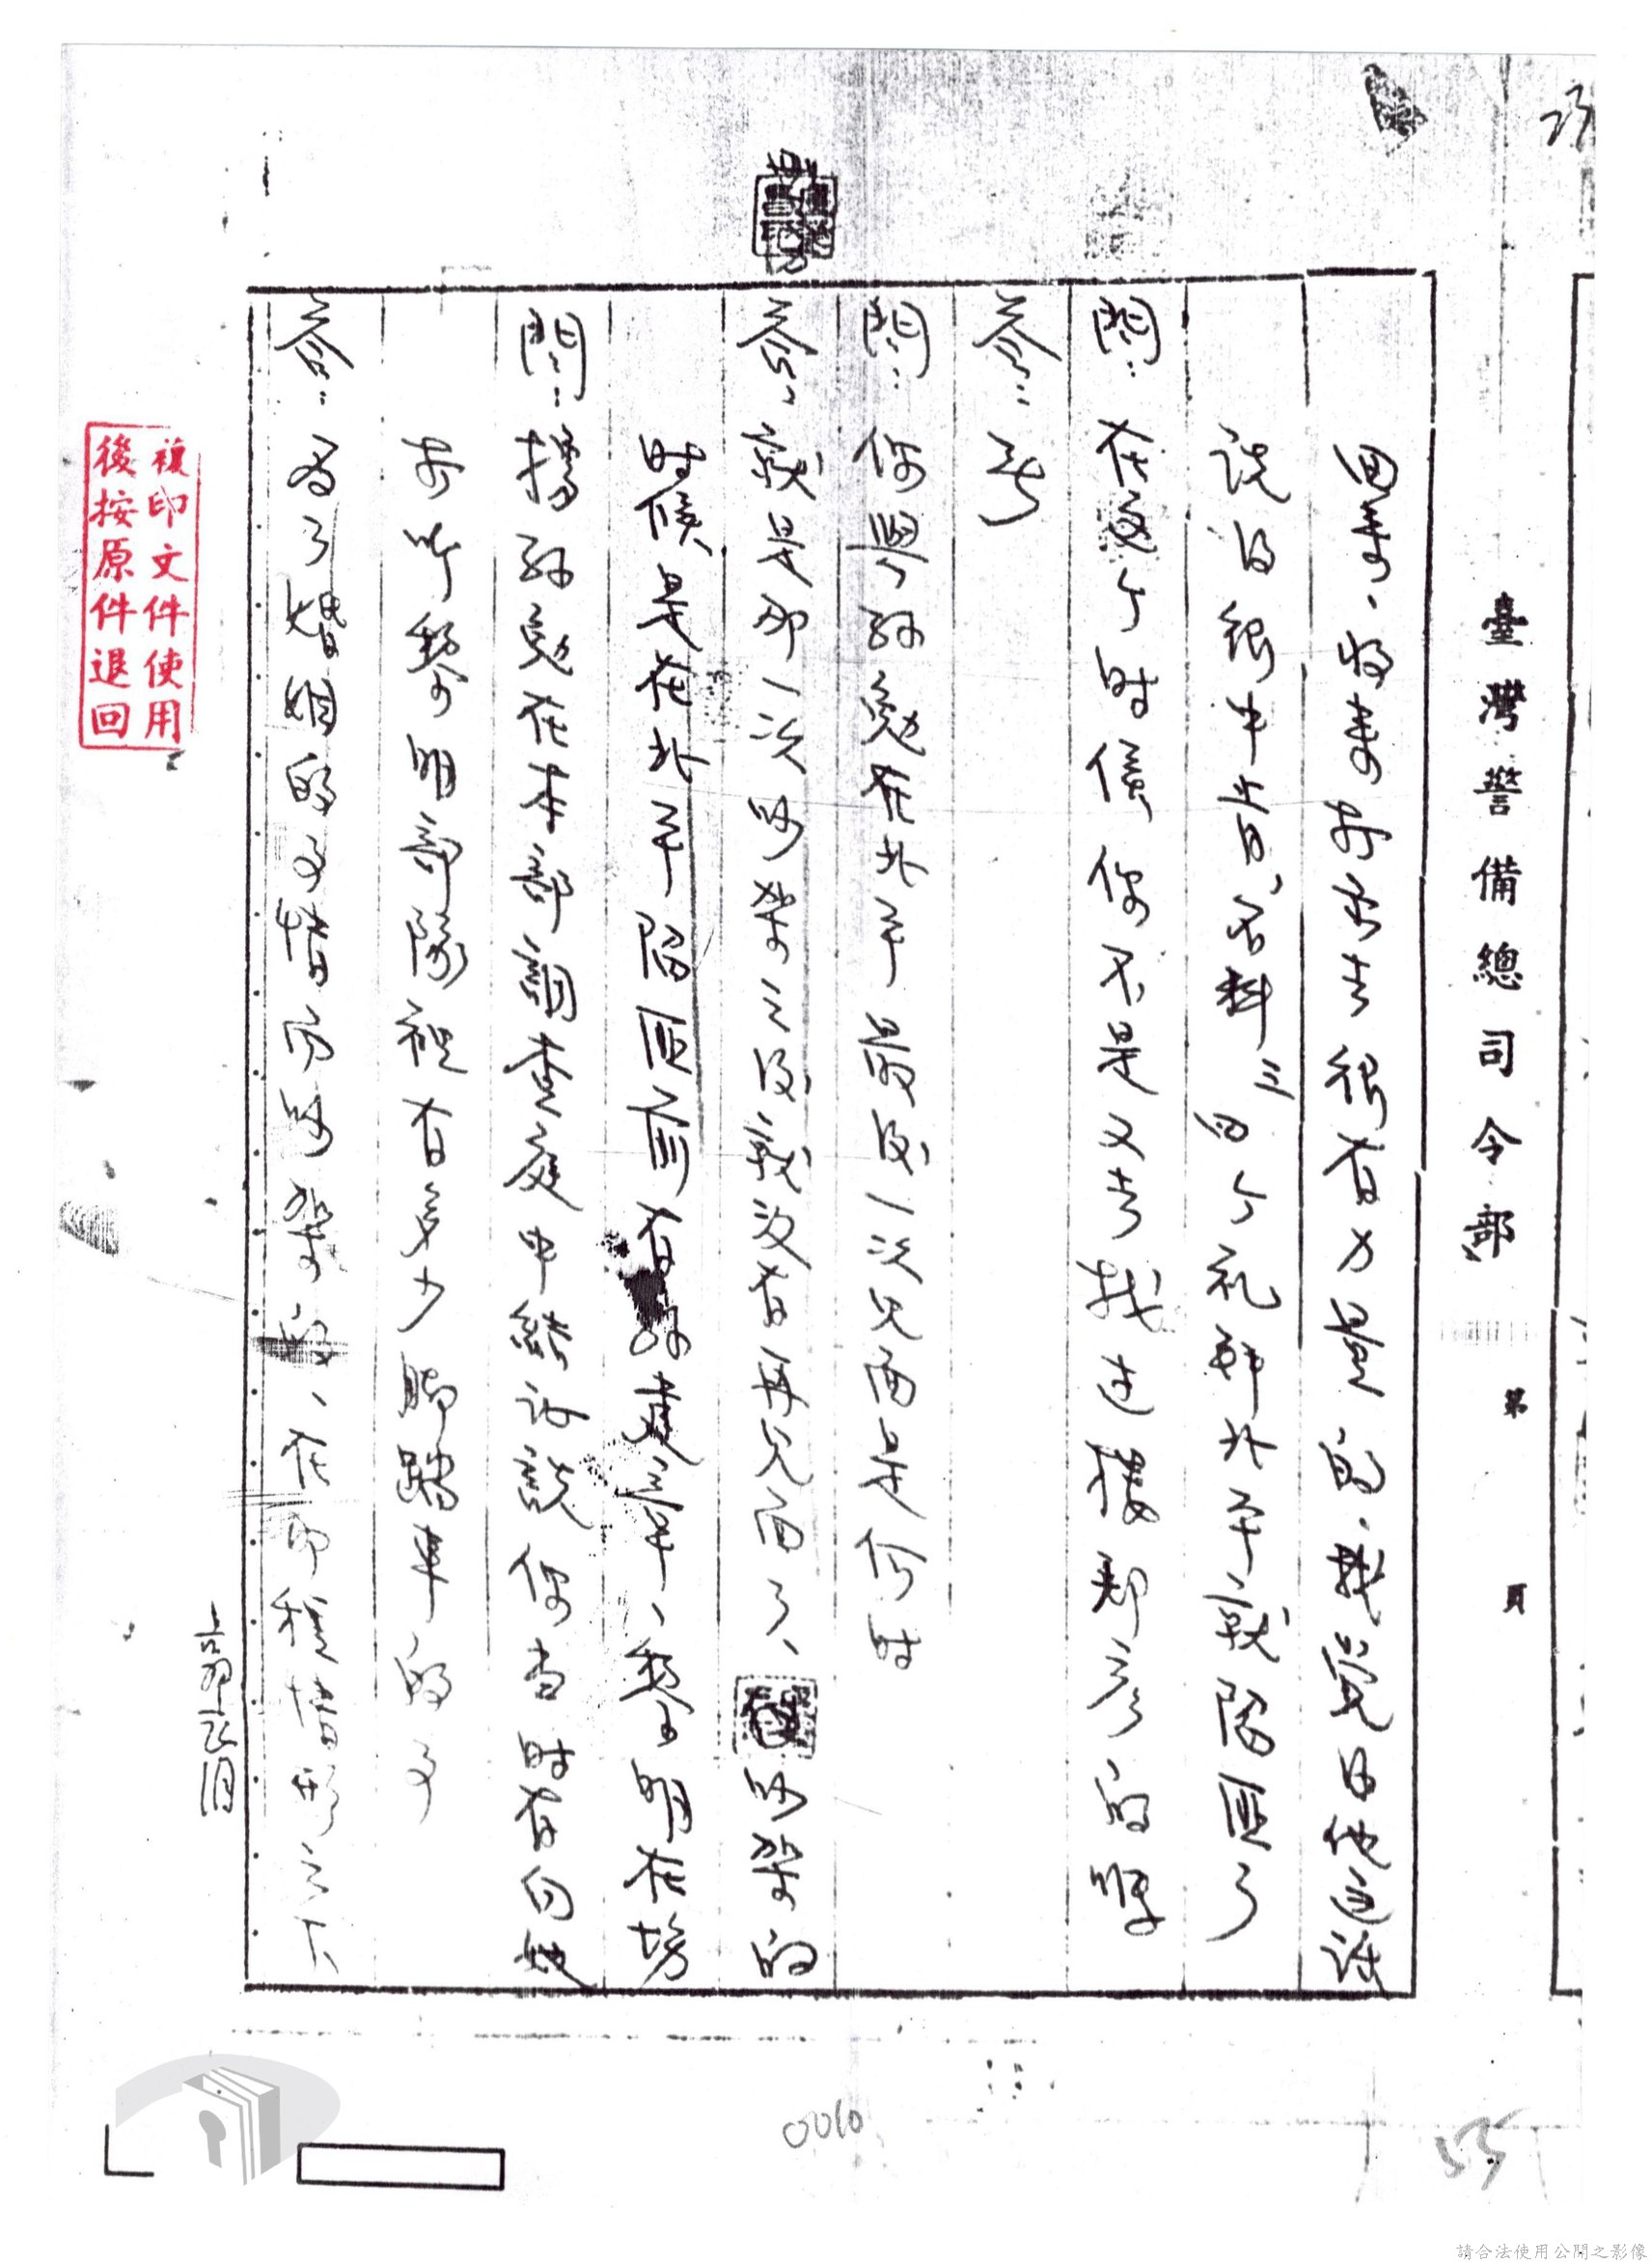 臺灣警備總司令部 第 頁
回來，將來央去很有力量的，我覺得他這話
說的很中肯，不料三四个礼拜北平就陷匪了
問：在這个時候你不是又去找过樓郑彥的嗎
答：无
問：你與孫兔在北平最後一次見面是何时
答，就是那一次吵架之後就沒有再見面了，吵架的
时候是在北平陷匪前有孫建章，黎明在場
問：據孫兔在本部調查庭中錯訴說你当时有向她
打听黎明部隊裡有多少脚踏車的事
答：為了婚姻的事情而吵架的，在那種情形之下
复印文件使用
後按原件退回
0010
55
請合法使用公開之影像